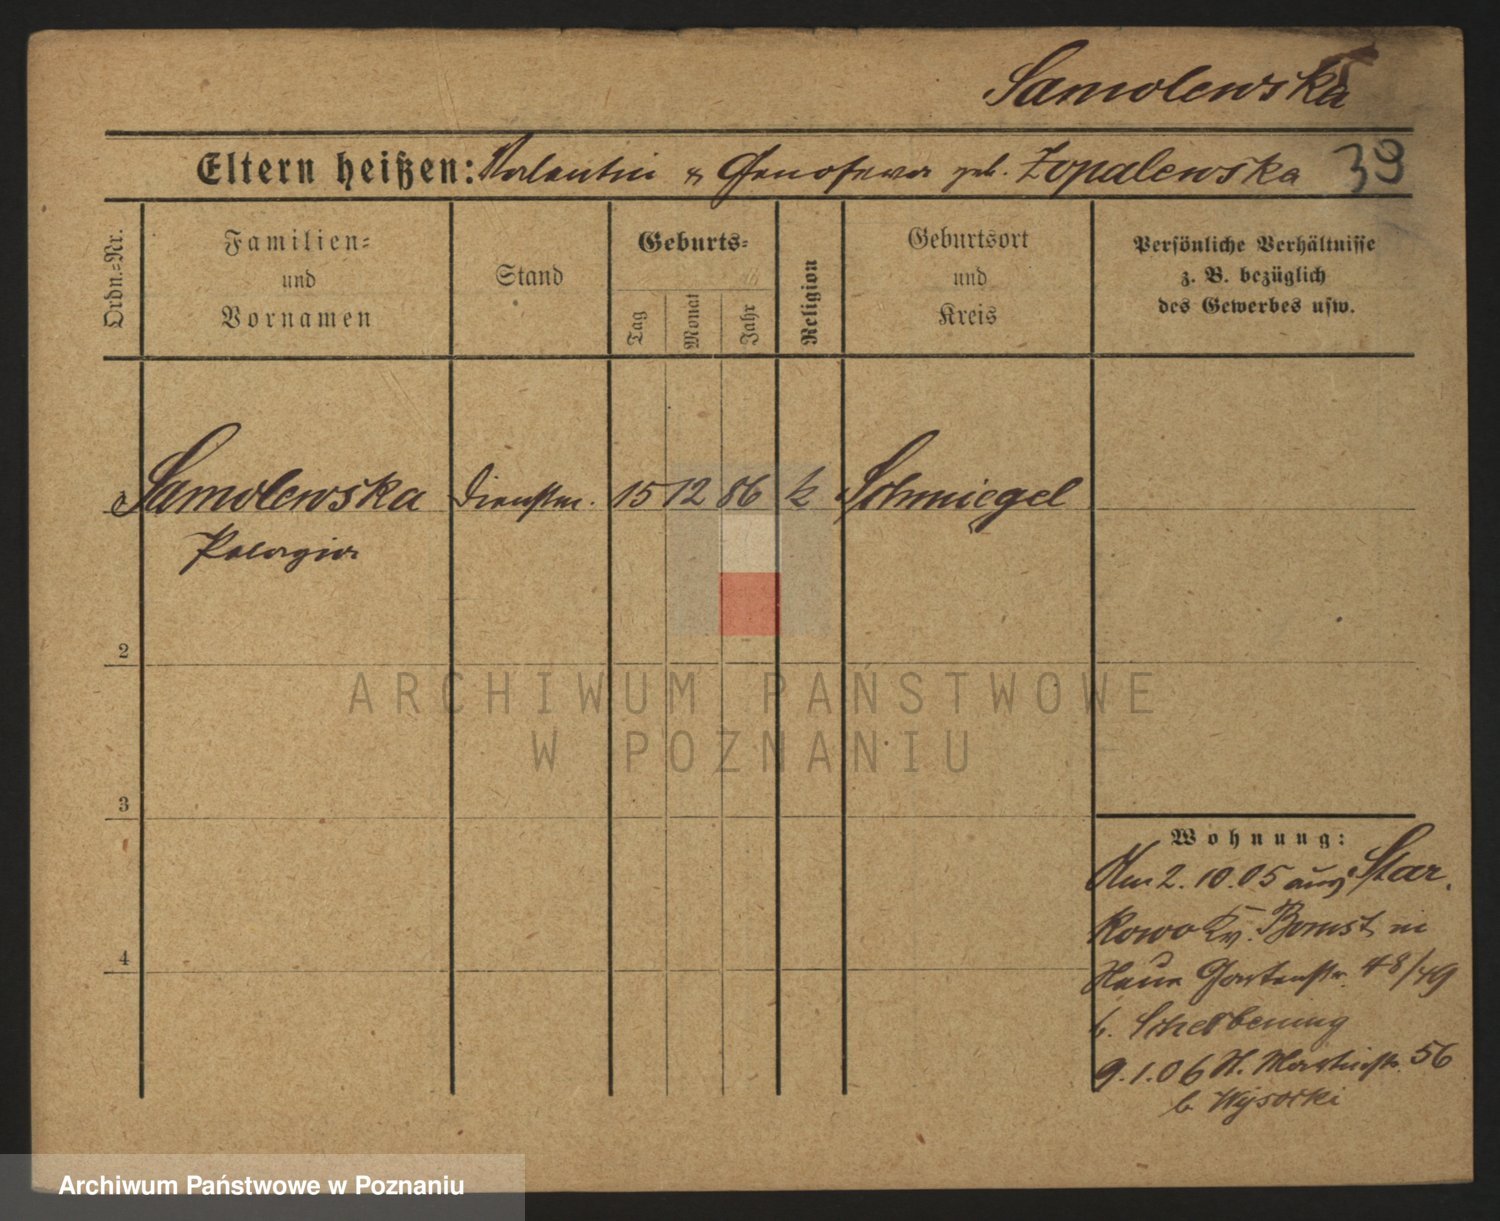 Samolewska
Eltern heißen: Valentin & Genofewa geb. Zopalewska 39
Ordn.=Nr.
Familien=
und
Vornamen
Stand
Geburts=
Tag
Monat
Jahr
Religion
Geburtsort
und
Kreis
Persönliche Verhältnisse
z. B. bezüglich
des Gewerbes usw.
Samolewska Dienstm. 15 12 86 k Schmiegel
Pelagia
2
3
4
Wohnung:
Am 2. 10. 05 aus Star
kowo Kr. Bomst in
Neue Gartenstr. 48/49
b.
9. 1. 06 St. Martinstr. 56
b. Wysocki
ARCHIWUM PAŃSTWOWE
W POZNANIU
Archiwum Państwowe w Poznaniu